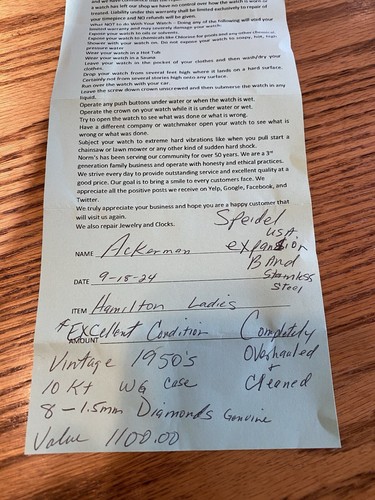 a watch has left our shop we have no control over how the watch is
treated. Liability under this warranty shall be limited exclusively to repair of
your timepiece and NO refunds will be given.
What NOT to do With Your Watch - Doing any of the following will void your
limited warranty and may severely damage your watch:
Expose your watch to oils or solvents.
Expose your watch to chemicals like Chlorine for pools and any other chemical
Shower with your watch on. Do not expose your watch to
pressure water.
Wear your watch in a Hot Tub
Wear your watch in a Sauna
Leave your watch in the pocket of your clothes and then wash/dry your
clothes.
Drop your watch from several feet high where it lands on a hard surface.
Certainly not from several stories high onto any surface.
Run over the watch with your car.
Leave the screw down crown unscrewed and then submerse the watch in any
liquid.
Operate any push buttons under water or when the watch is wet.
Operate the crown on your watch while it is under water or wet.
Try to open the watch to see what was done or what is wrong.
Have a different company or watchmaker open your watch to see what is
wrong or what was done.
Subject your watch to extreme hard vibrations like when you pull start a
chainsaw or lawn mower or any other kind of sudden hard shock.
Norm's has been serving our community for over 50 years. We are a 3rd
generation family business and operate with honesty and ethical practices.
We strive every day to provide outstanding service and excellent quality at a
good price. Our goal is to bring a smile to every customers face. We
appreciate all the positive posts we receive on Yelp, Google, Facebook, and
Twitter.
We truly appreciate your business and hope you are a happy customer that
will visit us again.
We also repair Jewelry and Clocks.
Speidel
USA
NAME Ackerman
expansion
BAnd
DATE 9-18-24
Stainless
Steel
ITEM Hamilton Ladies
*EXCellent Condition
AMOUNT
Completely
Overhauled
+
Cleaned
Vintage 1950's
10 Kt WG Case
8 - 1.5mm Diamonds Genuine
Value 1100.00